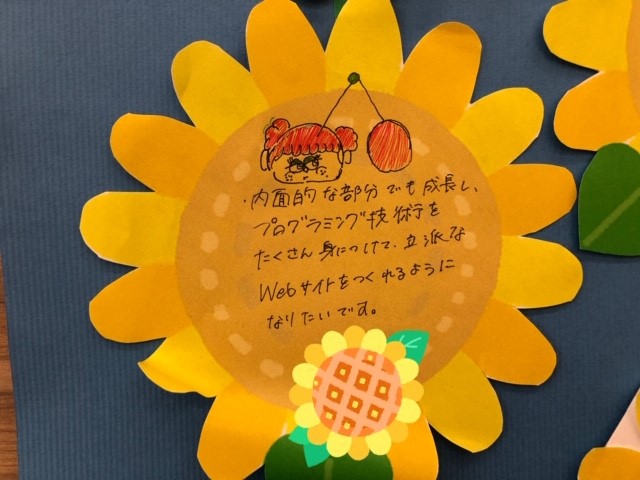 ・内面的な部分でも成長し、
プログラミング技術を
たくさん身につけて、立派な
Webサイトをつくれるように
なりたいです。